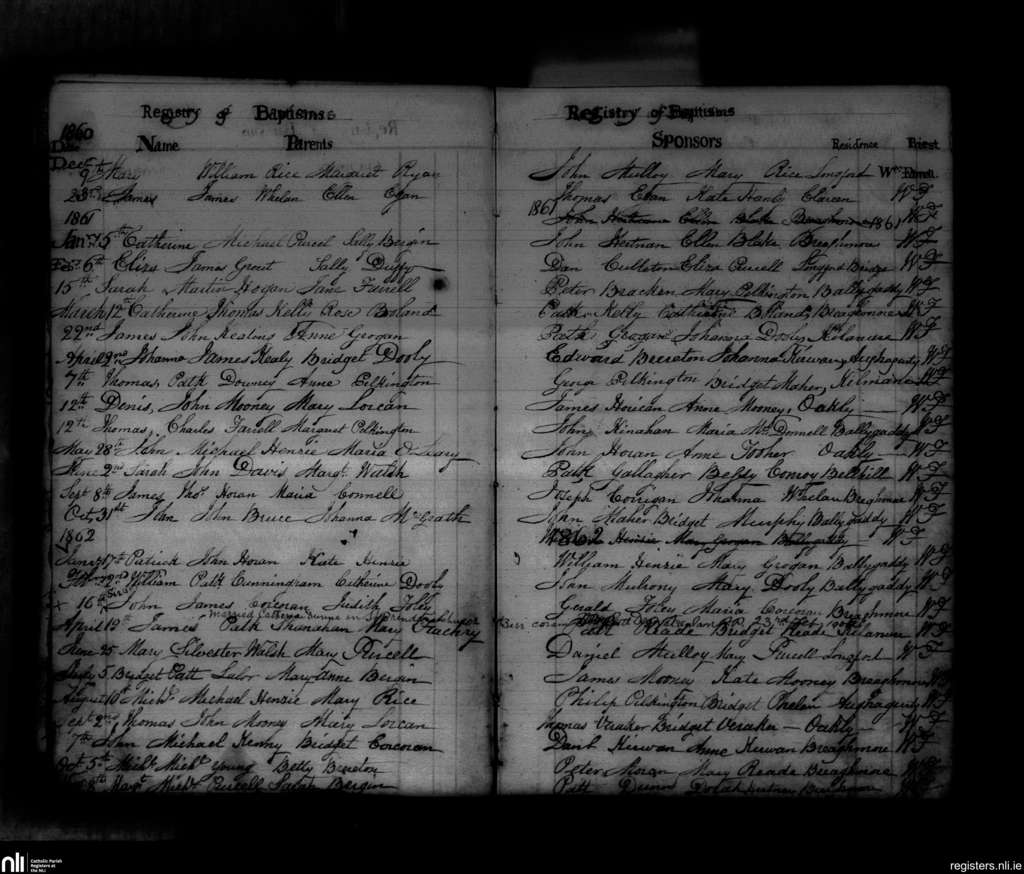 Registry of Baptisms
1860
Name Parents
Dec
9th Mary William Rice Margaret Ryan
23rd James James Whelan Ellen Egan
1861
Jan 15th Catherine Michael Purcel Sally Bergin
Feb 6th Eliza James Grout Sally Duffy
15th Sarah Martin Hogan Jane Farrell
March 12th Catherine Thomas Kelly Rose Boland
22nd James John Keatons Anne Grogan
April 2nd Johanna James Kealy Bridget Dooly
7th Thomas Patk Downey Anne Pilkington
12th Denis, John Mooney Mary Lorcan
12th Thomas, Charles Farrell Margaret Pilkington
May 28th John Michael Henzie Maria O'Leary
June 2nd Sarah John Davis Margt Walsh
Sept 8th James Thos Horan Maria Connell
Oct 31st John John Bruce Johanna McGrath
1862
Jany 17th Patrick John Horan Kate Henzie
22nd William Patk Cunningham Catherine Dooly
16th John James Corcoran Judith Foley
married Catherine Dunne in
April 19th James Patk Shanahan Mary
June 25 Mary Silvester Walsh Mary Purcell
July 5 Bridget Patt Lalor Mary Anne Bevian
August 10th Michl Michael Henzie Mary Rice
Sept 2nd Thomas John Mooney Mary Lorcan
7th John Michael Kenny Bridget Corcoran
Oct 5th Michl Michl Young Betty Brereton
8th Margt Michl Purcell Sarah Bergin
Registry of Baptisms
Sponsors Residence Priest
John Mulloy Mary Rice Longford Wm Farrell
Thomas Egan Kate Hanly Clarean W F
1861
John Hertnan Ellen Blake Breaghmore 1861 W F
John Hertnan Ellen Blake Breaghmore W F
Dan Culleton Eliza Purcell Longford Bridge W F
Peter Bracken Mary Pilkington Ballygaddy W F
Patk Kelly Catherine Boland, Breaghmore W F
Patk Grogan Johanna Dooly Kilmaine W F
Edward Brereton Johanna Kirwan, Aughagurty W F
George Pilkington Bridget Maher, Kilmaine W F
James Horican Anne Mooney, Oakly W F
John Kinahan Maria McDonnell Ballygaddy W F
John Horan Anne Tosher Oakly W F
Patk Gallagher Betsey Conroy Bellhill W F
Joseph Corrigan Johanna Whelan Breaghmore W F
John Maher Bridget Murphy Ballygaddy W F
1862 Henzie Mary Grogan Ballygaddy W F
William Henzie Mary Grogan Ballygaddy W F
John Mulrony Mary Dooly Ballygaddy W F
Gerald Foley Maria Corcoran Breaghmore W F
Birr 23rd Feb
Patt Reade Bridget Reade Kilmaine W F
Daniel Mulloy Mary Purcell Longford W F
James Mooney Kate Mooney Breaghmore W F
Philip Pilkington Bridget Phelan Aughagurty W F
Thomas Veraker Bridget Veraker — Oakly — W F
Danl Kirwan Anne Kirwan Breaghmore W F
Peter Moran Mary Reade Breaghmore W F
Patt Dunn Breaghmore
nli Catholic Parish Registers at the NLI
registers.nli.ie